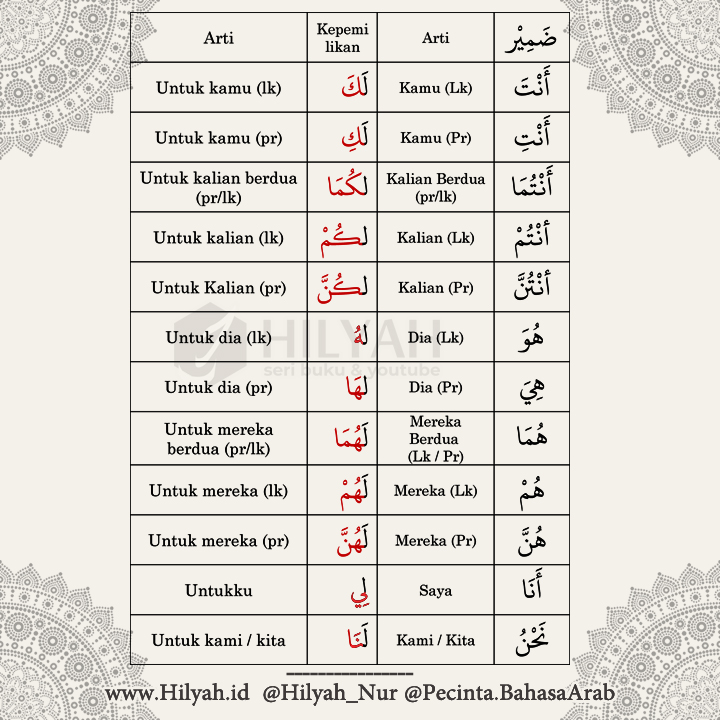 Arti Kepemi likan Arti ضَمِيْر
Untuk kamu (lk) لَكَ Kamu (Lk) أَنْتَ
Untuk kamu (pr) لَكِ Kamu (Pr) أَنْتِ
Untuk kalian berdua (pr/lk) لكُمَا Kalian Berdua (pr/lk) أَنْتُمَا
Untuk kalian (lk) لكُمْ Kalian (Lk) أنْتُمْ
Untuk Kalian (pr) لكُنَّ Kalian (Pr) أنْتُنَّ
Untuk dia (lk) لهُ Dia (Lk) هُوَ
Untuk dia (pr) لَهَا Dia (Pr) هِيَ
Untuk mereka berdua (pr/lk) لَهُمَا Mereka Berdua (Lk / Pr) هُمَا
Untuk mereka (lk) لَهُمْ Mereka (Lk) هُمْ
Untuk mereka (pr) لَهُنَّ Mereka (Pr) هُنَّ
Untukku لِي Saya أَنَا
Untuk kami / kita لَنَا Kami / Kita نَحْنُ
HILYAH
seri buku & youtube
www.Hilyah.id @Hilyah_Nur @Pecinta.BahasaArab